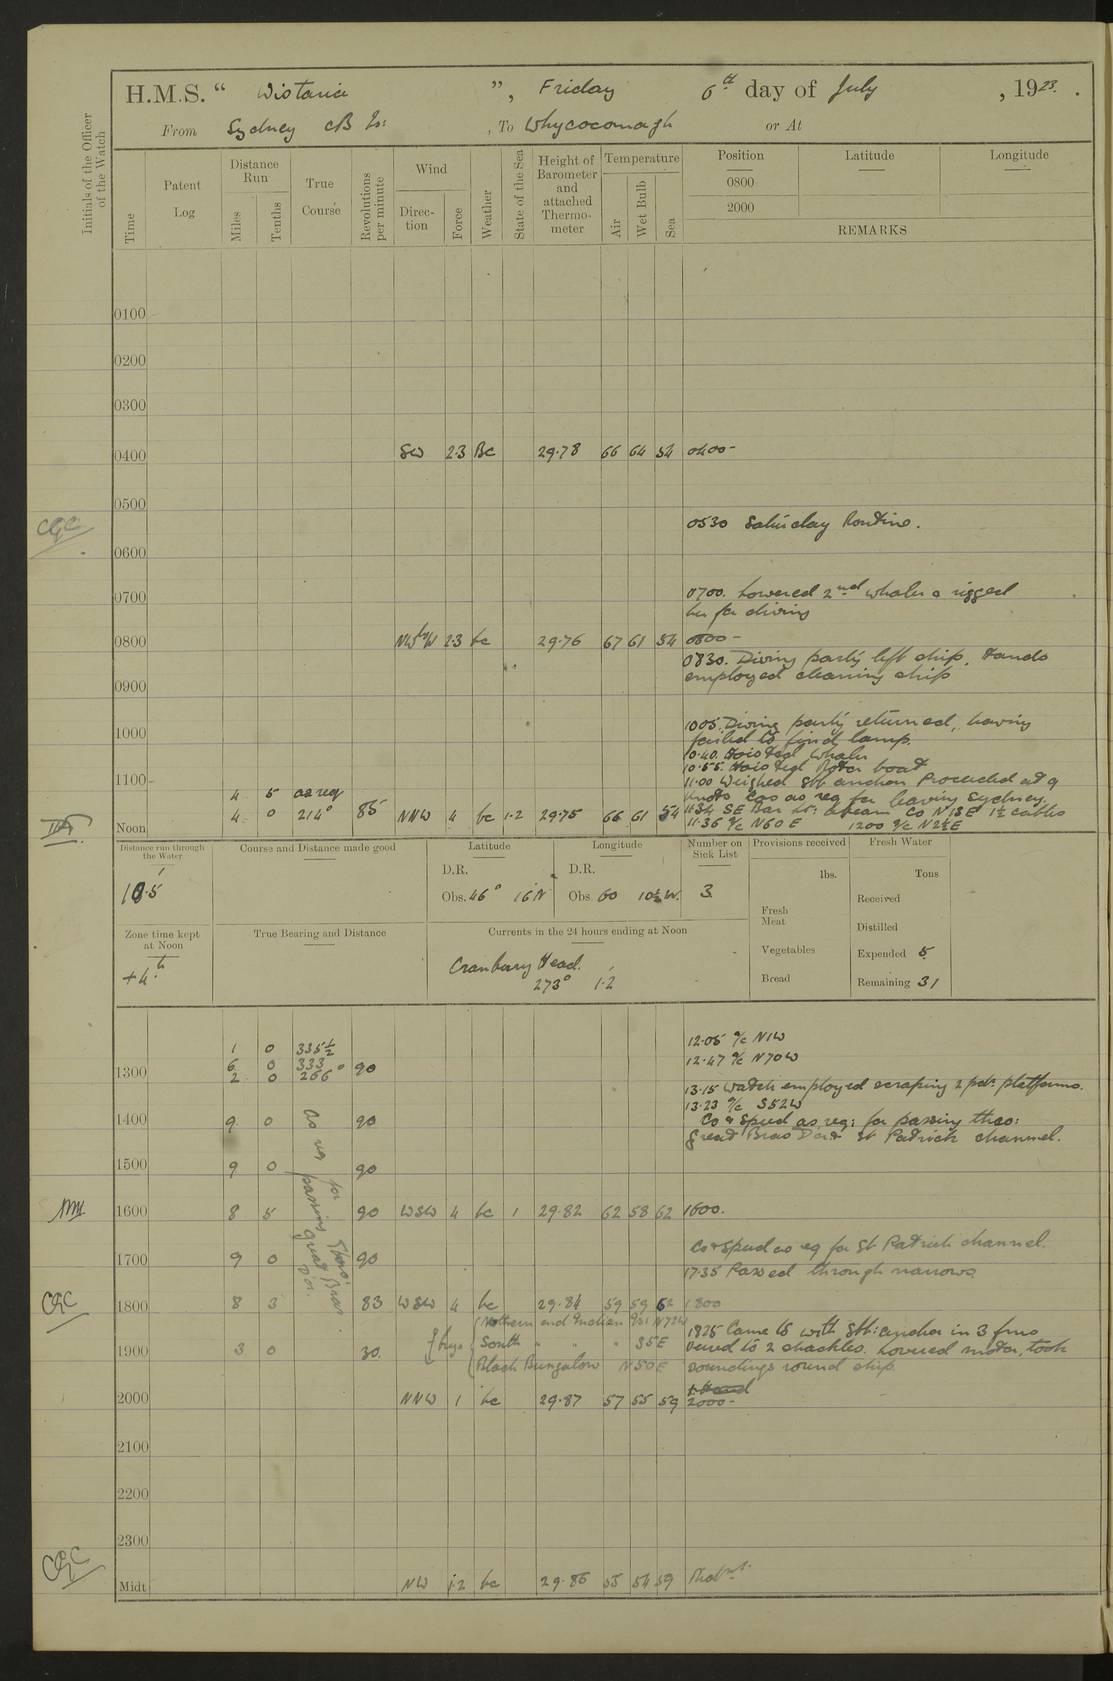 H.M.S. " Wistaria ", Friday 6th day of July, 1923.
From Sydney CB , To Whycocomagh or At
Initials of the Officer of the Watch
Time
Patent Log
Distance Run
Miles
Tenths
True Course
Revolutions per minute
Wind
Direction
Force
Weather
State of the Sea
Height of Barometer and attached Thermometer
Temperature
Air
Wet Bulb
Sea
Position Latitude Longitude
0800
2000
REMARKS
0100
0200
0300
0400 SW 2.3 Bc 29.78 66 64 54 0400-
0500
CGC
0530 Saturday Routine.
0600
0700 0700. Lowered 2nd whaler & rigged
her for diving
0800 NWbyW 2.3 bc 29.76 67 61 54 0800-
0830. Diving party left ship. Hands
0900 employed cleaning ship
1005. Diving party returned, having
1000 failed to find lamp.
10.40. Hoisted whaler
10.55. Hoisted Motor boat
1100 11.00 Weighed Stbd anchor Proceeded at 9
4 5 as req knots Cos as req for leaving Sydney.
4 0 214° 85 NNW 4 bc 1.2 29.75 66 61 54 11.34 SE Bar Lt: abeam Co N13E 1½ cables
Noon 11.36 a/c N60E 1200 a/c N2½E
Distance run through the Water
10.5
Course and Distance made good
Latitude
D.R.
Obs. 46° 16'N
Longitude
D.R.
Obs 60 10½ W.
Number on Sick List
3
Provisions received
lbs.
Fresh Meat
Vegetables
Bread
Fresh Water
Tons
Received
Distilled
Expended 5
Remaining 31
Zone time kept at Noon
+4h
True Bearing and Distance
Currents in the 24 hours ending at Noon
Cranberry Head.
273° 1.2
1 0 335½ 12.05 a/c N1W
6 0 333° 12.47 a/c N70W
1300 2 0 266 90
13.15 Watch employed scraping 2 pdr platforms.
13.23 a/c S52W
1400 9 0 90 Co & Speed as req: for passing thro:
Great Bras D'or & St Patrick channel.
as req for passing thro: great Bras D'or.
1500 9 0 90
1600 8 5 90 WSW 4 bc 1 29.82 62 58 62 1600.
Co & Speed as req for St Patrick channel.
1700 9 0 90
17.35 Passed through narrows
CGC
1800 8 3 83 WSW 4 bc 29.84 59 59 62 1800
Northern end Indian Isl N72W
1825 Came to with Stbd: anchor in 3 fms
brgs South " " " S5E
1900 3 0 30. veered to 2 shackles. Lowered motor, took
Black Bungalow N50E soundings round ship
2000 NNW 1 bc 29.87 57 55 59 2000-
2100
2200
2300
CGC
Midt NW 1.2 bc 29.86 55 54 59 Midnt.